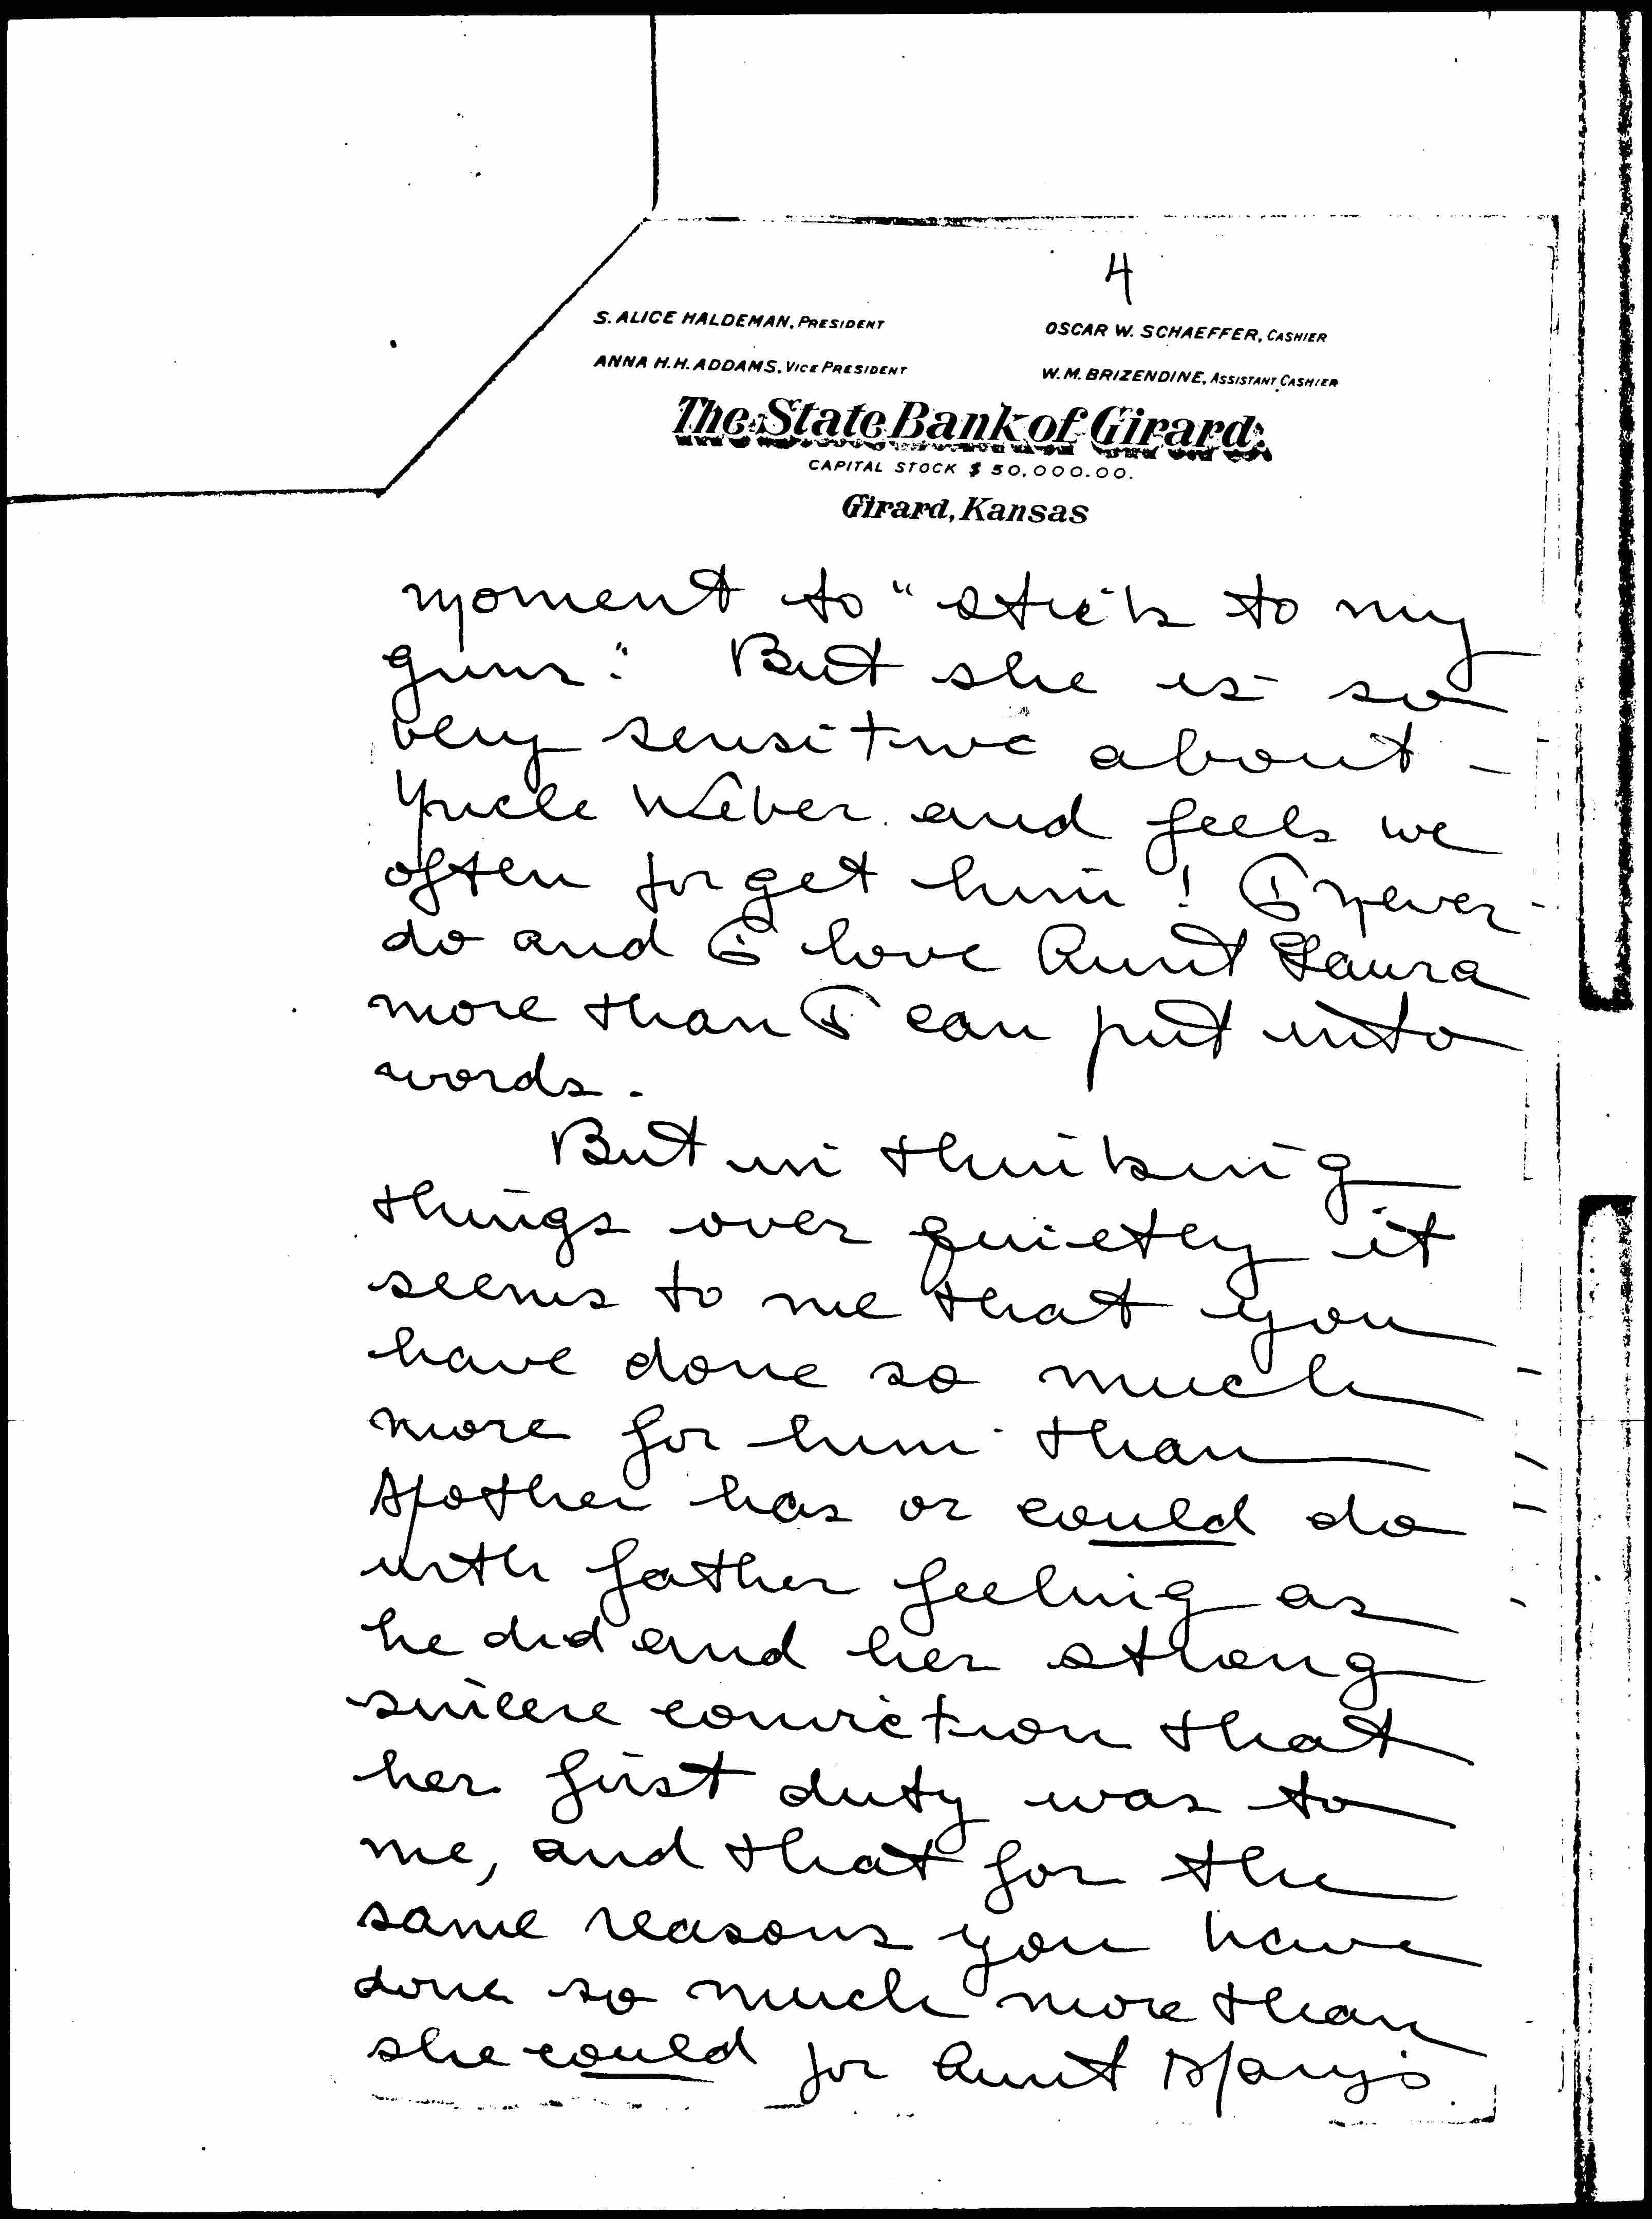 4
S. ALICE HALDEMAN, PRESIDENT
OSCAR W. SCHAEFFER, CASHIER
ANNA H. H. ADDAMS, VICE PRESIDENT
W. M. BRIZENDINE, ASSISTANT CASHIER
The State Bank of Girard.
CAPITAL STOCK $ 50,000.00.
Girard, Kansas
moment to "stick to my
guns." But she is so
very sensitive about -
Uncle Weber and feels we
often forget him! I never
do and I love Aunt Laura
more than I can put into
words.
But in thinking
things over quietly it
seems to me that you
have done so much
more for him than
Mother has or could do
with father feeling as
he did and her strong
sincere conviction that
her first duty was to
me, and that for the
same reasons you have
done so much more than
she could for Aunt Mary's